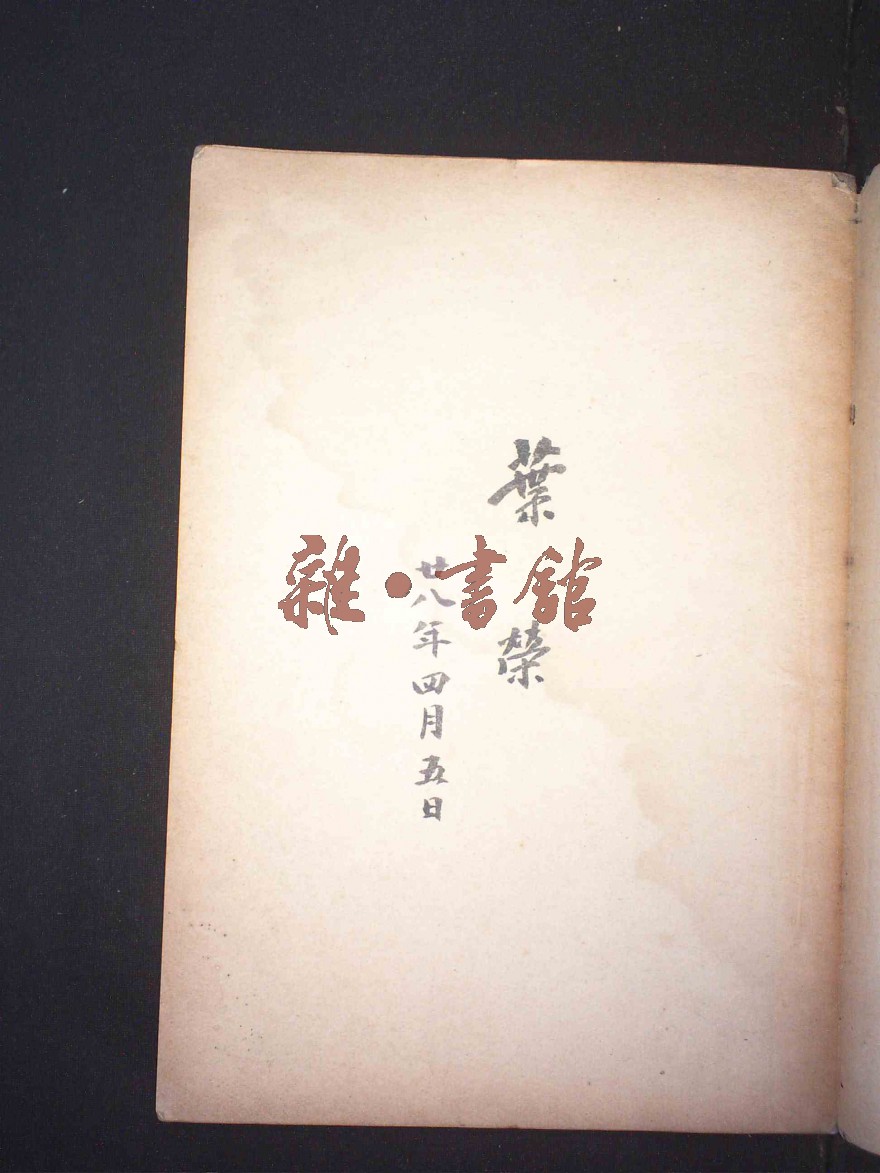 葉榮
廿八年四月五日
雜·書館